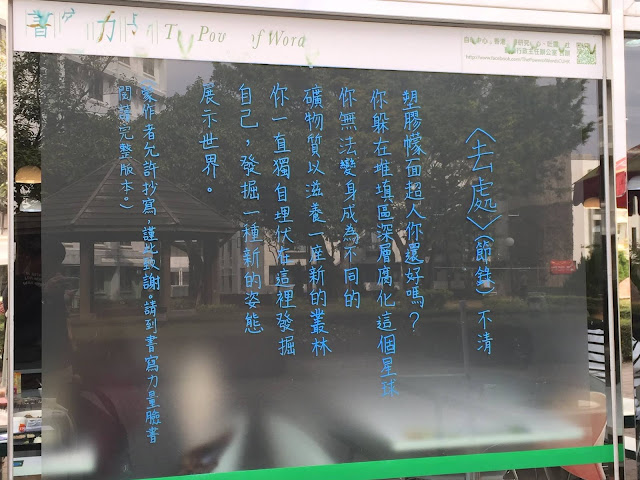 書 力
of Word
〈去處〉(節錄) 不清
塑膠幪面超人你還好嗎?
你躲在堆填區深層腐化這個星球
你無法變身成為不同的
礦物質以滋養一座新的叢林
你一直獨自埋伏在這裡發掘
自己,發掘一種新的姿態
展示世界。
蒙作者允許抄寫,謹此致謝。請到書寫力量臉書
閱讀完整版本。)